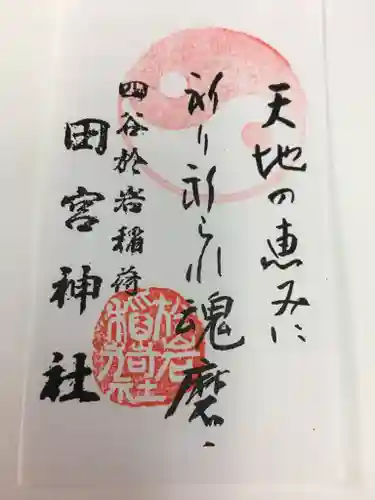 天地の恵みに
祈り祈られ魂磨
四谷於岩稲荷
田宮神社
於岩稲荷